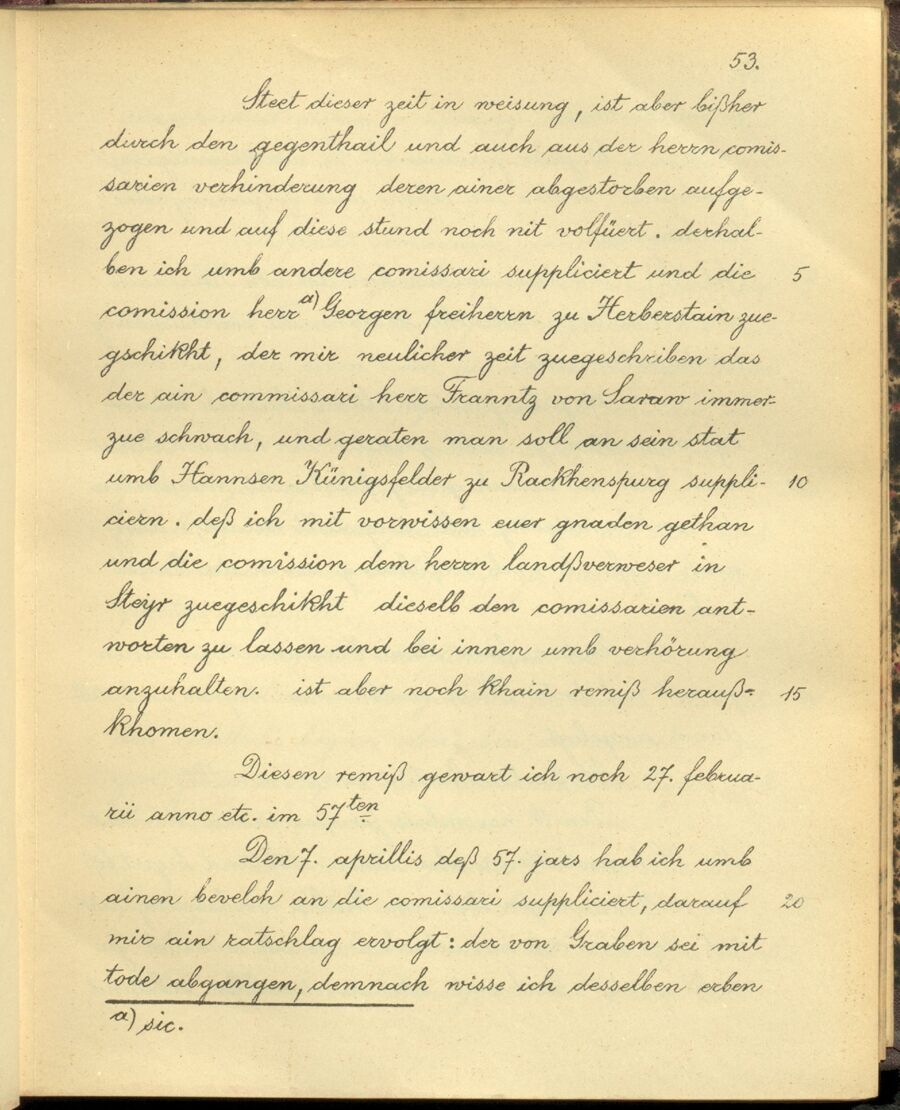 53.
Steet dieser zeit in weisung, ist aber bißher
durch den gegenthail und auch aus der herrn comis-
sarien verhinderung deren ainer abgestorben aufge-
zogen und auf diese stund noch nit volfüert. derhal-
ben ich umb andere comissari suppliciert und die 5
comission herr a) Georgen freiherrn zu Herberstain zue-
gschikht, der mir neulicher zeit zuegeschriben das
der ain commissari herr Franntz von Saraw immer-
zue schwach, und geraten man soll an sein stat
umb Hannsen Künigsfelder zu Rackhenspurg suppli- 10
ciern. deß ich mit vorwissen euer gnaden gethan
und die comission dem herrn landßverweser in
Steyr zuegeschikht dieselb den comissarien ant-
worten zu lassen und bei innen umb verhörung
anzuhalten. ist aber noch khain remiß herauß- 15
khomen.
Diesen remiß gewart ich noch 27. februa-
rii anno etc. im 57ten
Den 7. aprillis deß 57. jars hab ich umb
ainen bevelch an die comissari suppliciert, darauf 20
mir ain ratschlag ervolgt: der von Graben sei mit
tode abgangen, demnach wisse ich desselben erben
a) sic.